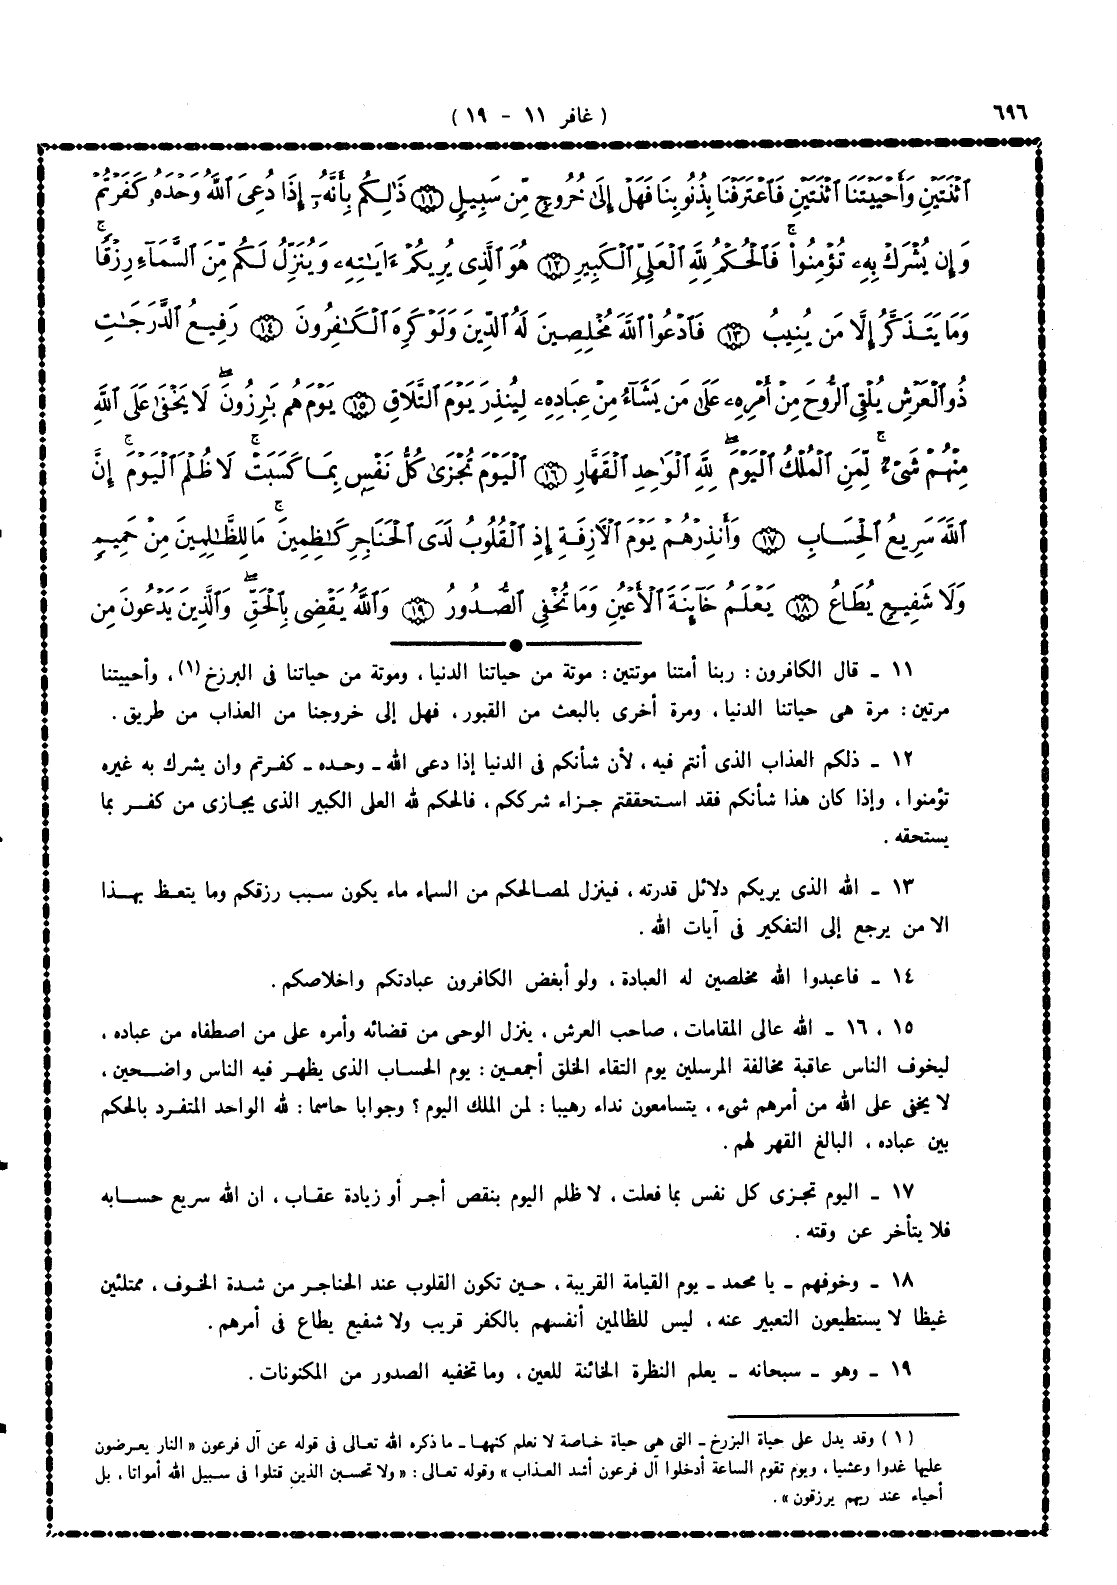 ٦٩٦
( غافر ١١ - ١٩ )
ٱثْنَتَيْنِ وَأَحْيَيْتَنَا ٱثْنَتَيْنِ فَٱعْتَرَفْنَا بِذُنُوبِنَا فَهَلْ إِلَىٰ خُرُوجٍ مِّن سَبِيلٍ ﴿١١﴾ ذَٰلِكُم بِأَنَّهُۥٓ إِذَا دُعِىَ ٱللَّهُ وَحْدَهُۥ كَفَرْتُمْ
وَإِن يُشْرَكْ بِهِۦ تُؤْمِنُوا۟ ۚ فَٱلْحُكْمُ لِلَّهِ ٱلْعَلِىِّ ٱلْكَبِيرِ ﴿١٢﴾ هُوَ ٱلَّذِى يُرِيكُمْ ءَايَـٰتِهِۦ وَيُنَزِّلُ لَكُم مِّنَ ٱلسَّمَآءِ رِزْقًا ۚ
وَمَا يَتَذَكَّرُ إِلَّا مَن يُنِيبُ ﴿١٣﴾ فَٱدْعُوا۟ ٱللَّهَ مُخْلِصِينَ لَهُ ٱلدِّينَ وَلَوْ كَرِهَ ٱلْكَـٰفِرُونَ ﴿١٤﴾ رَفِيعُ ٱلدَّرَجَـٰتِ
ذُو ٱلْعَرْشِ يُلْقِى ٱلرُّوحَ مِنْ أَمْرِهِۦ عَلَىٰ مَن يَشَآءُ مِنْ عِبَادِهِۦ لِيُنذِرَ يَوْمَ ٱلتَّلَاقِ ﴿١٥﴾ يَوْمَ هُم بَـٰرِزُونَ ۖ لَا يَخْفَىٰ عَلَى ٱللَّهِ
مِنْهُمْ شَىْءٌ ۚ لِّمَنِ ٱلْمُلْكُ ٱلْيَوْمَ ۖ لِلَّهِ ٱلْوَٰحِدِ ٱلْقَهَّارِ ﴿١٦﴾ ٱلْيَوْمَ تُجْزَىٰ كُلُّ نَفْسٍۭ بِمَا كَسَبَتْ ۚ لَا ظُلْمَ ٱلْيَوْمَ ۚ إِنَّ
ٱللَّهَ سَرِيعُ ٱلْحِسَابِ ﴿١٧﴾ وَأَنذِرْهُمْ يَوْمَ ٱلْـَٔازِفَةِ إِذِ ٱلْقُلُوبُ لَدَى ٱلْحَنَاجِرِ كَـٰظِمِينَ ۚ مَا لِلظَّـٰلِمِينَ مِنْ حَمِيمٍ
وَلَا شَفِيعٍ يُطَاعُ ﴿١٨﴾ يَعْلَمُ خَآئِنَةَ ٱلْأَعْيُنِ وَمَا تُخْفِى ٱلصُّدُورُ ﴿١٩﴾ وَٱللَّهُ يَقْضِى بِٱلْحَقِّ ۖ وَٱلَّذِينَ يَدْعُونَ مِن
١١ ـ قال الكافرون : ربنا أمتنا موتتين : موتة من حياتنا الدنيا ، وموتة من حياتنا فى البرزخ (١) ، وأحييتنا
مرتين : مرة هى حياتنا الدنيا ، ومرة أخرى بالبعث من القبور ، فهل إلى خروجنا من العذاب من طريق .
١٢ ـ ذلكم العذاب الذى أنتم فيه ، لأن شأنكم فى الدنيا إذا دعى الله ـ وحده ـ كفرتم وان يشرك به غيره
تؤمنوا ، وإذا كان هذا شأنكم فقد استحققتم جزاء شرككم ، فالحكم لله العلى الكبير الذى يجازى من كفر بما
يستحقه .
١٣ ـ الله الذى يريكم دلائل قدرته ، فينزل لمصالحكم من السماء ماء يكون سبب رزقكم وما يتعظ بهذا
الا من يرجع إلى التفكير فى آيات الله .
١٤ ـ فاعبدوا الله مخلصين له العبادة ، ولو أبغض الكافرون عبادتكم واخلاصكم .
١٥ ، ١٦ ـ الله عالى المقامات ، صاحب العرش ، ينزل الوحى من قضائه وأمره على من اصطفاه من عباده ،
ليخوف الناس عاقبة مخالفة المرسلين يوم التقاء الخلق أجمعين : يوم الحساب الذى يظهر فيه الناس واضحين ،
لا يخفى على الله من أمرهم شىء ، يتسامعون نداء رهيبا : لمن الملك اليوم ؟ وجوابا حاسما : لله الواحد المتفرد بالحكم
بين عباده ، البالغ القهر لهم .
١٧ ـ اليوم تجزى كل نفس بما فعلت ، لا ظلم اليوم بنقص أجر أو زيادة عقاب ، ان الله سريع حسابه
فلا يتأخر عن وقته .
١٨ ـ وخوفهم ـ يا محمد ـ يوم القيامة القريبة ، حين تكون القلوب عند الحناجر من شدة الخوف ، ممتلئين
غيظا لا يستطيعون التعبير عنه ، ليس للظالمين أنفسهم بالكفر قريب ولا شفيع يطاع فى أمرهم .
١٩ ـ وهو ـ سبحانه ـ يعلم النظرة الخائنة للعين ، وما تخفيه الصدور من المكنونات .
( ١ ) وقد يدل على حياة البزرخ ـ التى هى حياة خاصة لا نعلم كنهها ـ ما ذكره الله تعالى فى قوله عن آل فرعون « النار يعرضون
عليها غدوا وعشيا ، ويوم تقوم الساعة أدخلوا آل فرعون أشد العذاب » وقوله تعالى : « ولا تحسبن الذين قتلوا فى سبيل الله أمواتا ، بل
أحياء عند ربهم يرزقون » .